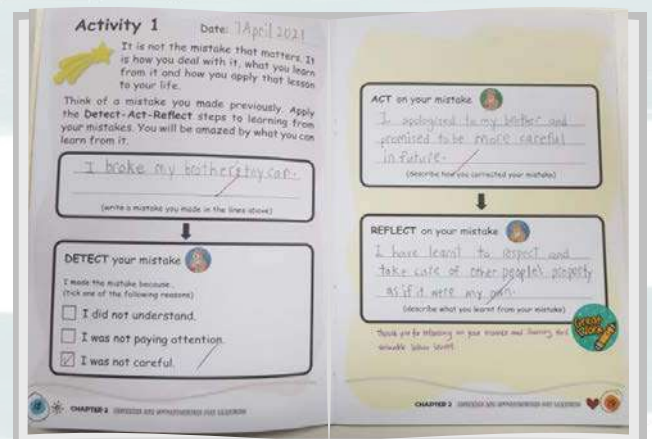 Activity 1
Date: 7 April 2021
It is not the mistake that matters. It
is how you deal with it, what you learn
from it and how you apply that lesson
to your life.
Think of a mistake you made previously. Apply
the Detect-Act-Reflect steps to learning from
your mistakes. You will be amazed by what you can
learn from it.
I broke my brother's toy car.
(write a mistake you made in the lines above)
DETECT your mistake
I made the mistake because...
(tick one of the following reasons)
I did not understand.
I was not paying attention.
I was not careful.
CHAPTER 2
ACT on your mistake
I apologised to my brother and
promised to be more careful
in future.
(describe how you corrected your mistake)
REFLECT on your mistake
I have learnt to respect and
take care of other people's property
as if it were my own.
(describe what you learnt from your mistake)
Great
Work
Thank you for reflecting on your mistake and learning this
valuable lesson
CHAPTER 2